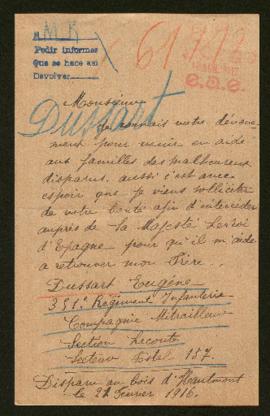 M.K
Pedir informes
Que se hace así
Devolver
61792
e.a.e.
Dussart
Monsieur
Je connais votre dévoue-
ment pour venir en aide
aux familles des malheureux
disparus. aussi c'est avec
espoir que je viens solliciter
de votre bonté afin d'intercéder
auprès de La Majesté Le roi
d'Epagne pour qu'il m'aide
a retrouver mon Frère.
Dussart Eugène
351e Régiment Infanterie
Compagnie Mitrailleur
Section Lecoute
Secteur Postal 157.
Disparu au bois d'Haumont
le 21 Fevrier 1916.